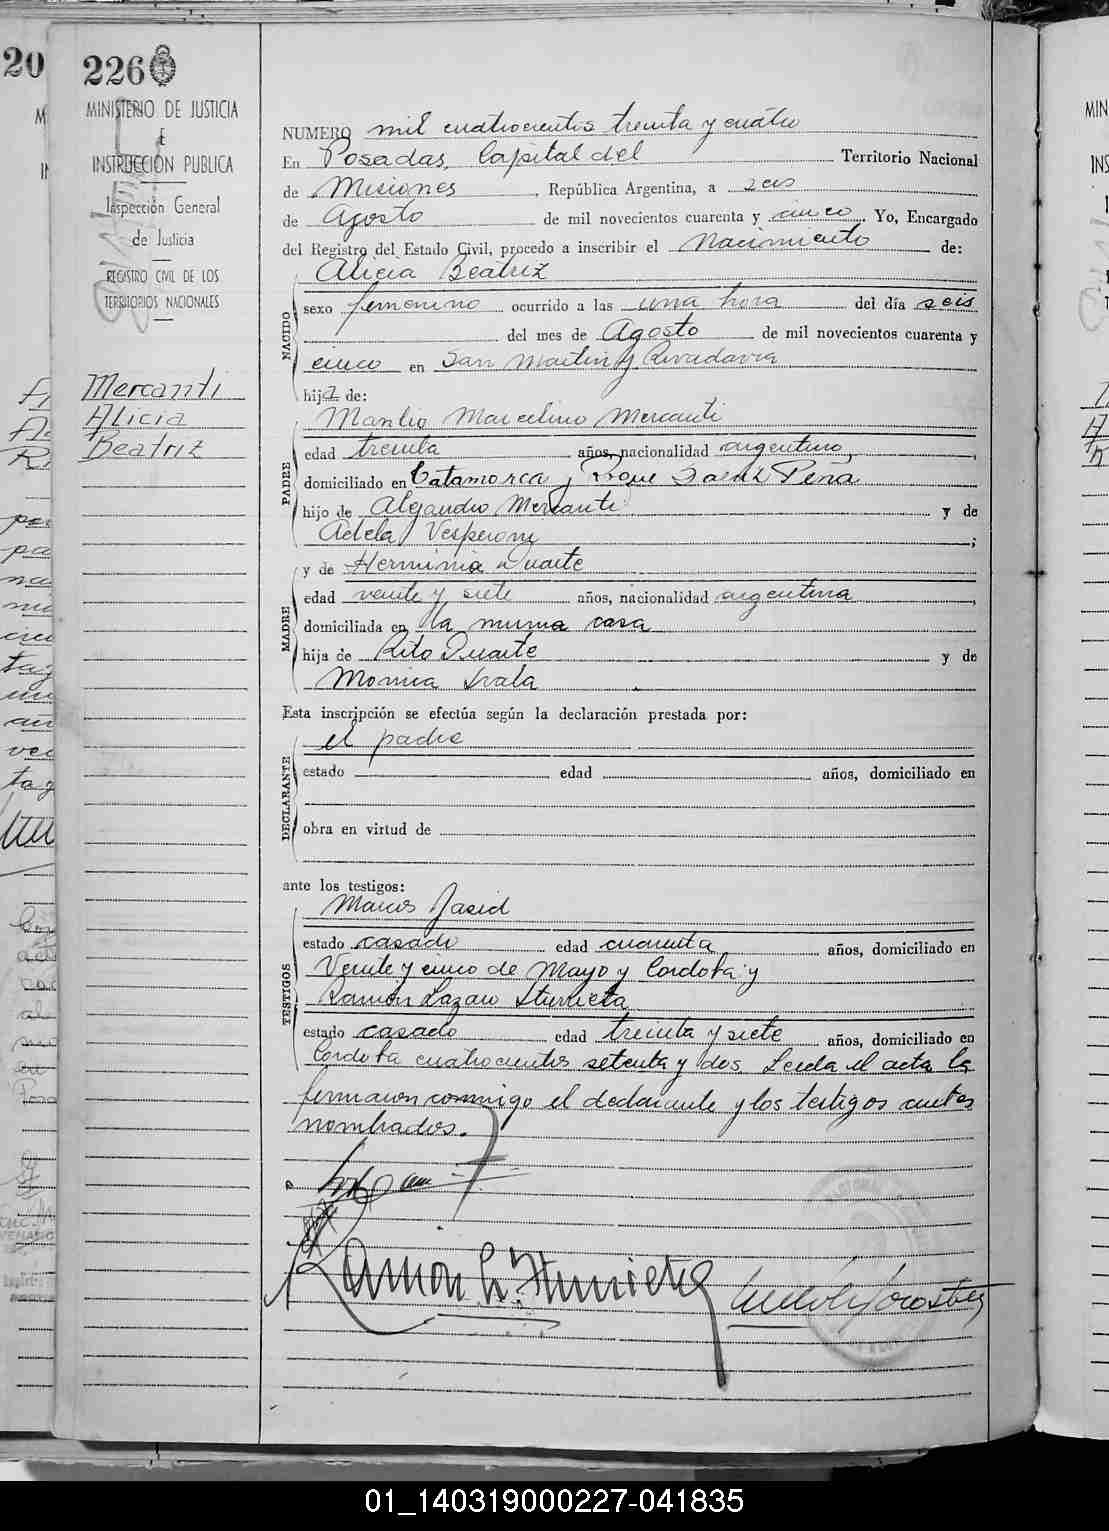 226
MINISTERIO DE JUSTICIA
E
INSTRUCCIÓN PUBLICA
Inspección General
de Justicia
REGISTRO CIVIL DE LOS
TERRITORIOS NACIONALES
Mercanti
Alicia
Beatriz
NUMERO mil cuatrocientos treinta y cuatro
En Posadas, Capital del Territorio Nacional
de Misiones, República Argentina, a seis
de Agosto de mil novecientos cuarenta y cinco. Yo, Encargado
del Registro del Estado Civil, procedo a inscribir el Nacimiento de:
NACIDO
Alicia Beatriz
sexo femenino ocurrido a las una hora del día seis
del mes de Agosto de mil novecientos cuarenta y
cinco en San Martin y Rivadavia
hija de:
PADRE
Manlio Marcelino Mercanti
edad treinta años, nacionalidad argentino,
domiciliado en Catamarca y Roque Saenz Peña
hijo de Alejandro Mercanti y de
Adela Vesperoni;
y de Herminia Duarte
MADRE
edad veinte y siete años, nacionalidad argentina,
domiciliada en la misma casa
hija de Rito Duarte y de
Monica Irala
Esta inscripción se efectúa según la declaración prestada por:
DECLARANTE
el padre
estado edad años, domiciliado en
obra en virtud de
ante los testigos:
TESTIGOS
Marcos
estado casado edad cuarenta años, domiciliado en
Veinte y cinco de Mayo y Cordoba y
Ramón Lazaro Iturrieta
estado casado edad treinta y siete años, domiciliado en
Cordoba cuatrocientos setenta y dos. Leida el acta la
firmaron conmigo el declarante y los testigos antes
nombrados.
Ramón L. Iturrieta
01_140319000227-041835